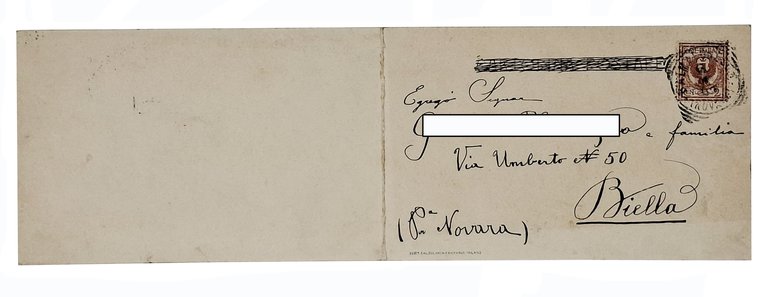 Egregio Signor
e famiglia
Via Umberto N° 50
Biella
(Pa Novara)